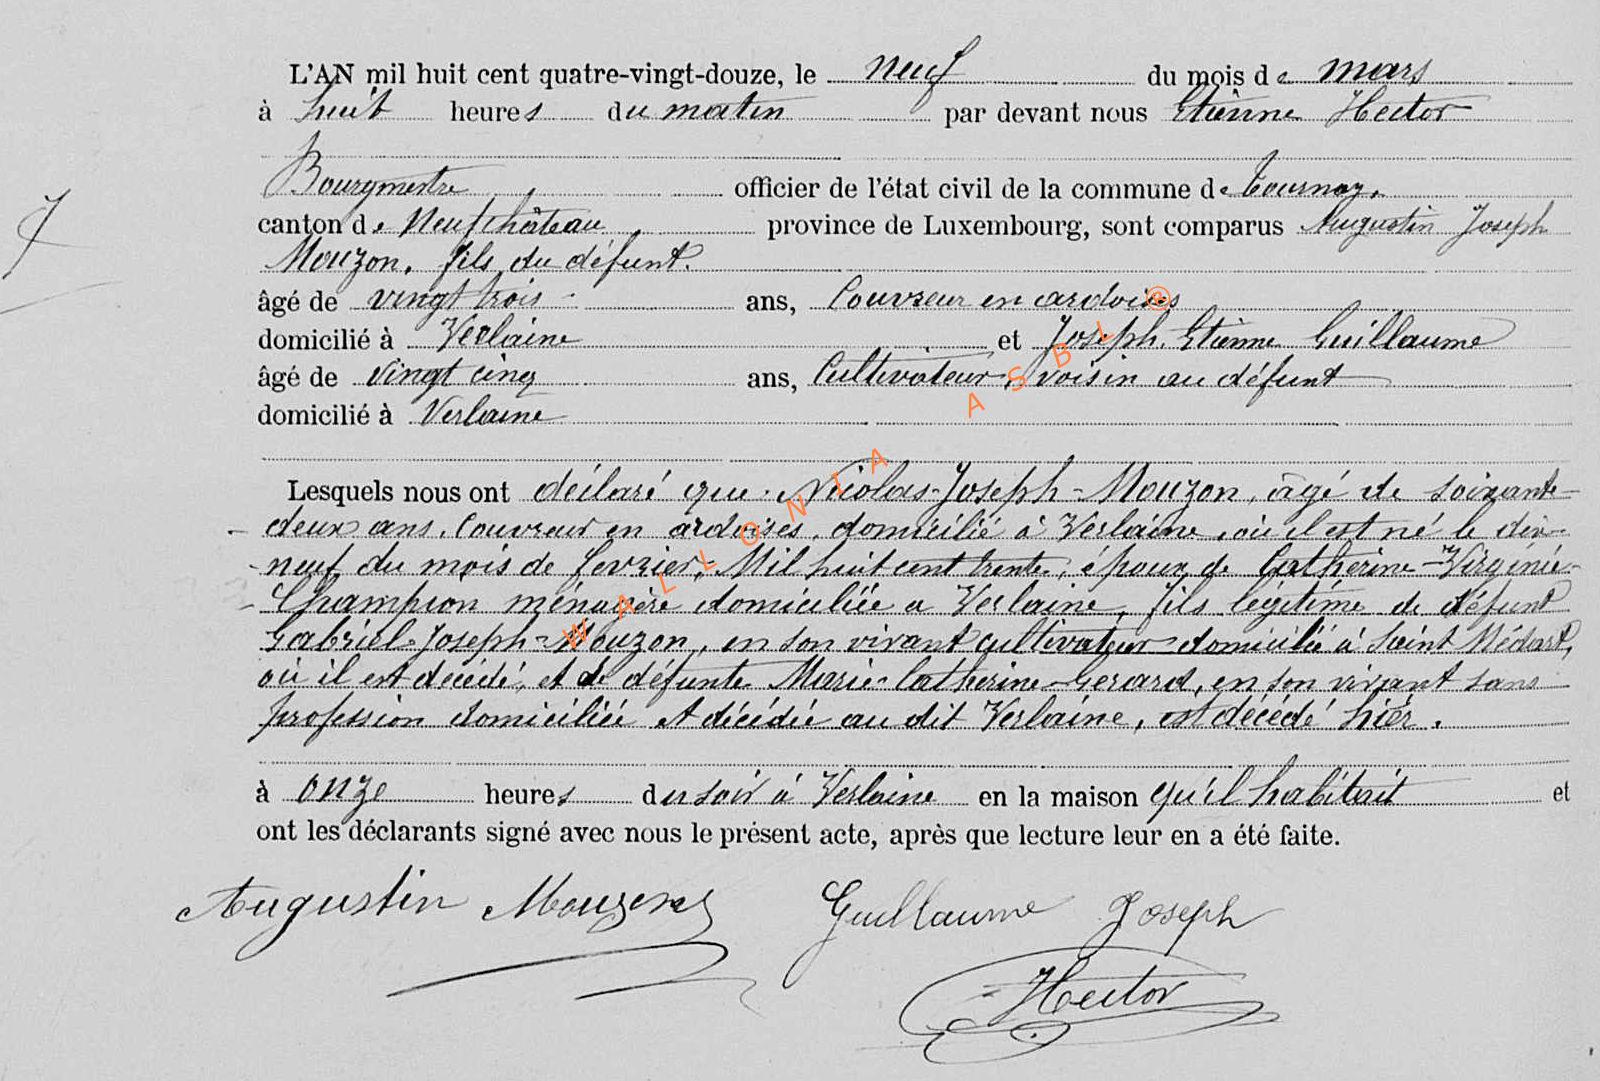 L'AN mil huit cent quatre-vingt-douze, le neuf du mois de mars
à huit heures du matin par devant nous Etienne Hector
Bourgmestre officier de l'état civil de la commune de Tournay,
canton de Neufchâteau province de Luxembourg, sont comparus Augustin Joseph
Mouzon, fils du défunt.
âgé de vingt trois ans, Couvreur en ardoises
domicilié à Verlaine et Joseph Etienne Guillaume
âgé de vingt cinq ans, Cultivateur, voisin au défunt
domicilié à Verlaine
Lesquels nous ont déclaré que Nicolas-Joseph-Mouzon, âgé de soixante-
deux ans, Couvreur en ardoises, domicilié à Verlaine, où il est né le dix-
neuf du mois de fevrier, Mil huit cent trente, époux de Cathérine-Virginie-
Champion ménagère domiciliée à Verlaine, fils légitime de défunt
Gabriel-Joseph-Mouzon, en son vivant cultivateur domicilié à Saint Médart,
où il est décédé, et de défunte Marie-Cathérine-Gerard, en son vivant sans
profession domiciliée et décédée au dit Verlaine, est décédé hier.
à onze heures du soir à Verlaine en la maison qu'il habitait et
ont les déclarants signé avec nous le présent acte, après que lecture leur en a été faite.
Augustin Mouzon Guillaume Joseph
Hector
WALLONIA ASBL ®